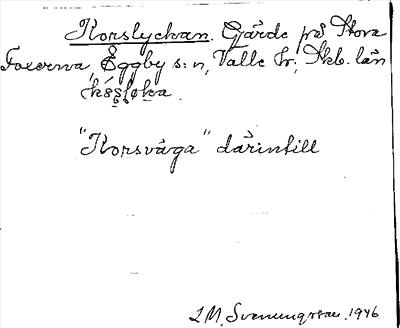 Korslyckan. Gärde på Stora
Foxerna, Eggby s:n, Valle hr; Skb. län
"Korsväga" därintill
L M. Svenungsson. 1946